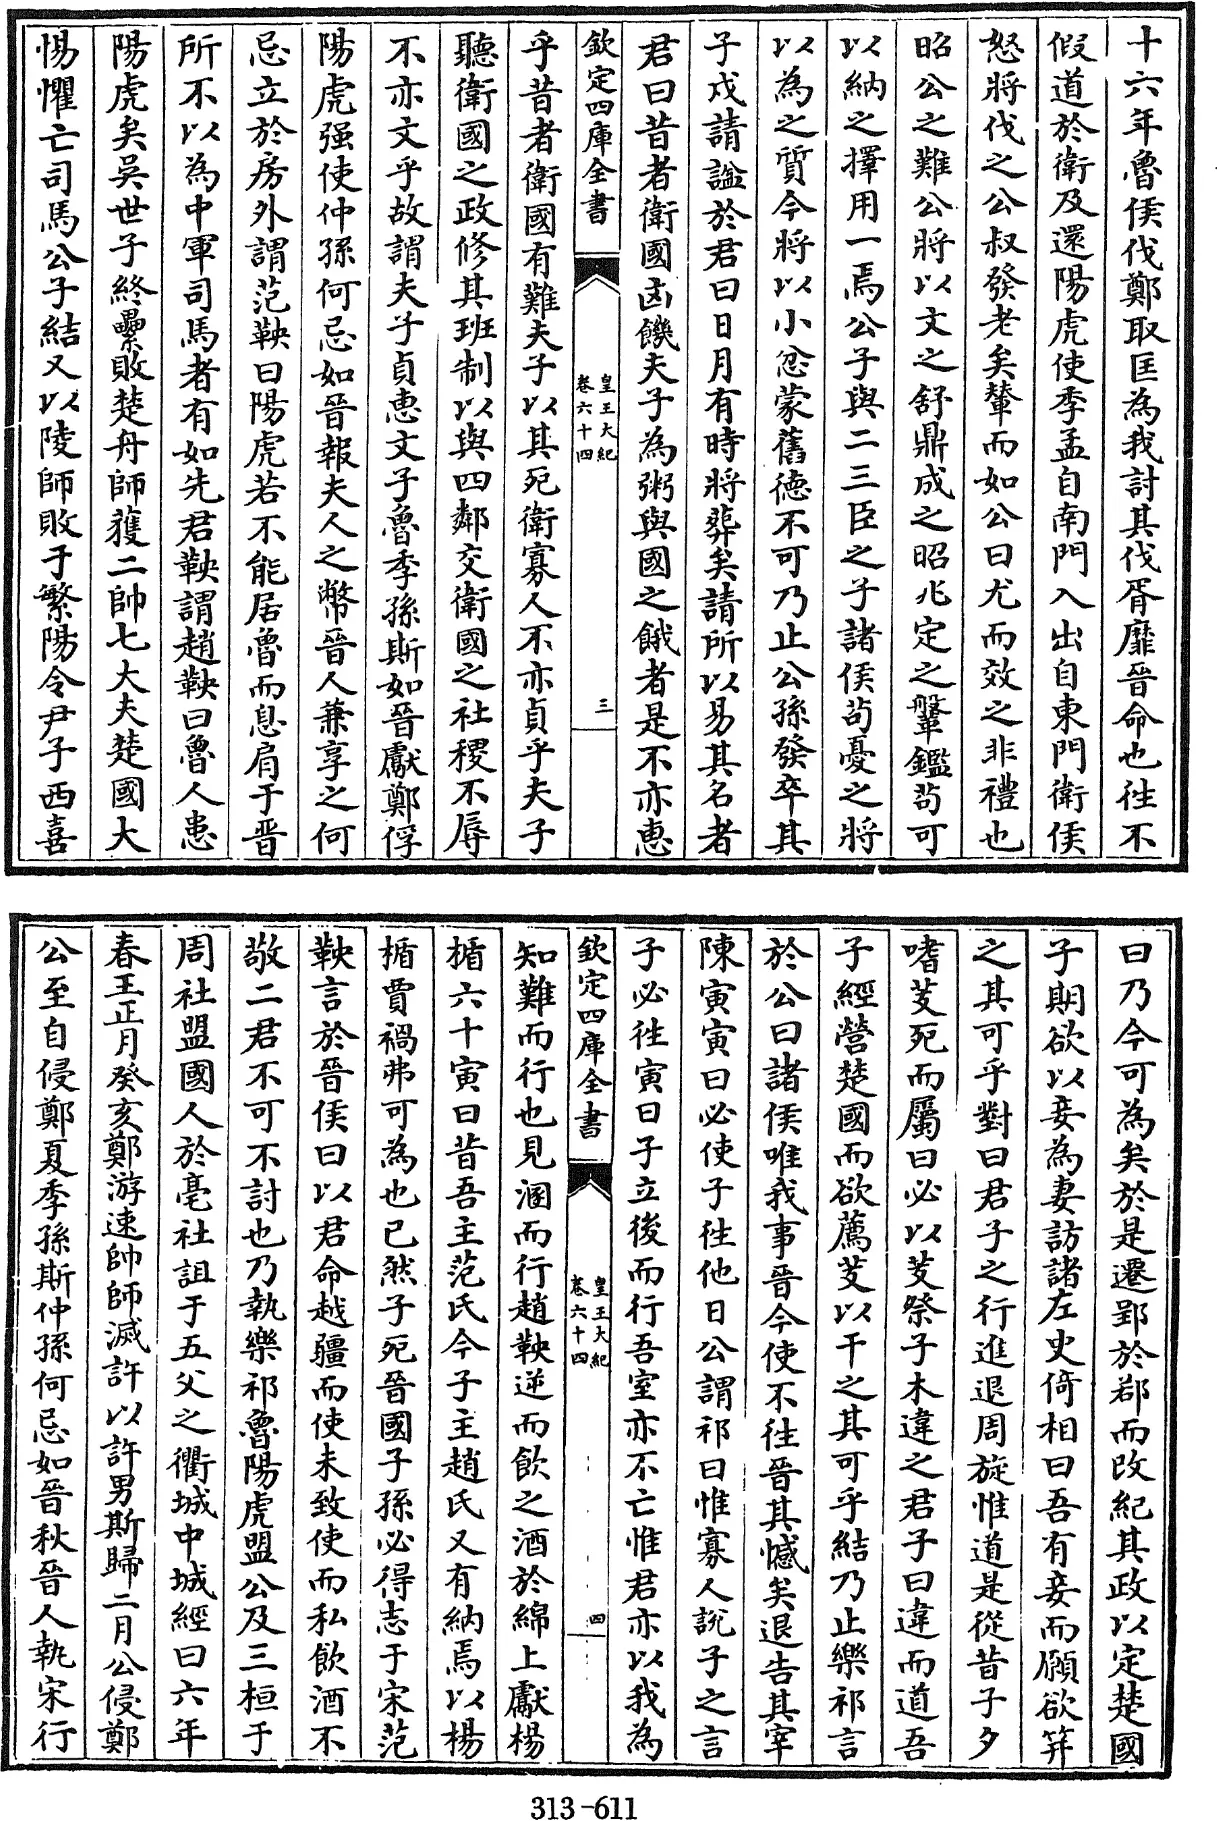 十六年魯侯伐鄭取匡為我討其伐胥靡晉命也往不
假道於衛及還陽虎使季孟自南門入出自東門衛侯
怒將伐之公叔發老矣輦而如公曰尤而效之非禮也
昭公之難公將以文之舒鼎成之昭兆定之鞶鑑茍可
以納之擇用一焉公子與二三臣之子諸侯茍憂之將
以為之質今將以小忿蒙舊德不可乃止公孫發卒其
子戍請諡於君曰日月有時將葬矣請所以易其名者
君曰昔者衛國凶饑夫子為粥與國之餓者是不亦惠
欽定四庫全書
皇王大紀
卷六十四
三
乎昔者衛國有難夫子以其死衛寡人不亦貞乎夫子
聽衛國之政修其班制以與四鄰交衛國之社稷不辱
不亦文乎故謂夫子貞惠文子魯季孫斯如晉獻鄭俘
陽虎强使仲孫何忌如晉報夫人之幣晉人兼享之何
忌立於房外謂范鞅曰陽虎若不能居魯而息肩于晉
所不以為中軍司馬者有如先君鞅謂趙鞅曰魯人患
陽虎矣吳世子終纍敗楚舟師獲二帥七大夫楚國大
惕懼亡司馬公子結又以陵師敗于繁陽令尹子西喜
曰乃今可為矣於是遷郢於鄀而改紀其政以定楚國
子期欲以妾為妻訪諸左史倚相曰吾有妾而願欲笄
之其可乎對曰君子之行進退周旋惟道是從昔子夕
嗜芰死而屬曰必以芰祭子木違之君子曰違而道吾
子經營楚國而欲薦芰以干之其可乎結乃止樂祁言
於公曰諸侯唯我事晉今使不往晉其憾矣退告其宰
陳寅寅曰必使子往他日公謂祁曰惟寡人說子之言
子必往寅曰子立後而行吾室亦不亡惟君亦以我為
欽定四庫全書
皇王大紀
卷六十四
四
知難而行也見溷而行趙鞅逆而飲之酒於綿上獻楊
楯六十寅曰昔吾主范氏今子主趙氏又有納焉以楊
楯賈禍弗可為也已然子死晉國子孫必得志于宋范
鞅言於晉侯曰以君命越疆而使未致使而私飲酒不
敬二君不可不討也乃執樂祁魯陽虎盟公及三桓于
周社盟國人於亳社詛于五父之衢城中城經曰六年
春王正月癸亥鄭游速帥師滅許以許男斯歸二月公侵鄭
公至自侵鄭夏季孫斯仲孫何忌如晉秋晉人執宋行
313-611